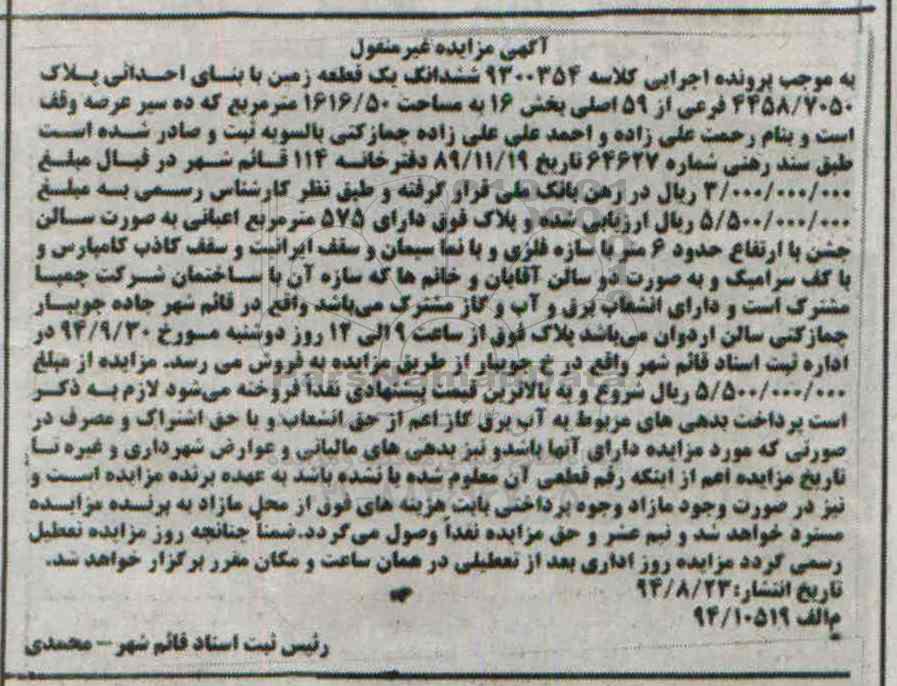 آگهی مزایده غیرمنقول
به موجب پرونده اجرایی کلاسه ۹۳۰۰۳۵۴ ششدانگ یک قطعه زمین با بنای احداثی پلاک
۴۴۵۸/۷۰۵۰ فرعی از ۵۹ اصلی بخش ۱۶ به مساحت ۱۶۱۶/۵۰ مترمربع که ده سیر عرصه وقف
است و بنام رحمت علی زاده و احمد علی علی زاده چمازکتی بالسویه ثبت و صادر شده است
طبق سند رهنی شماره ۶۴۶۲۷ تاریخ ۸۹/۱۱/۱۹ دفترخانه ۱۱۴ قائم شهر در قبال مبلغ
۳/۰۰۰/۰۰۰/۰۰۰ ریال در رهن بانک ملی قرار گرفته و طبق نظر کارشناس رسمی به مبلغ
۵/۵۰۰/۰۰۰/۰۰۰ ریال ارزیابی شده و پلاک فوق دارای ۵۷۵ مترمربع اعیانی به صورت سالن
جشن با ارتفاع حدود ۶ متر با سازه فلزی و با نما سیمان و سقف ایرانیت و سقف کاذب کامپارس و
با کف سرامیک و به صورت دو سالن آقایان و خانم ها که سازه آن با ساختمان شرکت چمپا
مشترک است و دارای انشعاب برق و آب و گاز مشترک می‌باشد واقع در قائم شهر جاده جویبار
چمازکتی سالن اردوان می‌باشد پلاک فوق از ساعت ۹ الی ۱۲ روز دوشنبه مورخ ۹۴/۹/۳۰ در
اداره ثبت اسناد قائم شهر واقع در خ جویبار از طریق مزایده به فروش می رسد. مزایده از مبلغ
۵/۵۰۰/۰۰۰/۰۰۰ ریال شروع و به بالاترین قیمت پیشنهادی نقداً فروخته می‌شود لازم به ذکر
است پرداخت بدهی های مربوط به آب برق گاز اعم از حق انشعاب و یا حق اشتراک و مصرف در
صورتی که مورد مزایده دارای آنها باشدو نیز بدهی های مالیاتی و عوارض شهرداری و غیره تا
تاریخ مزایده اعم از اینکه رقم قطعی آن معلوم شده یا نشده باشد به عهده برنده مزایده است و
نیز در صورت وجود مازاد وجوه پرداختی بابت هزینه های فوق از محل مازاد به برنده مزایده
مسترد خواهد شد و نیم عشر و حق مزایده نقداً وصول می‌گردد.ضمناً چنانچه روز مزایده تعطیل
رسمی گردد مزایده روز اداری بعد از تعطیلی در همان ساعت و مکان مقرر برگزار خواهد شد.
تاریخ انتشار: ۹۴/۸/۲۳
م‌الف ۹۴/۱۰۵۱۹
رئیس ثبت اسناد قائم شهر – محمدی